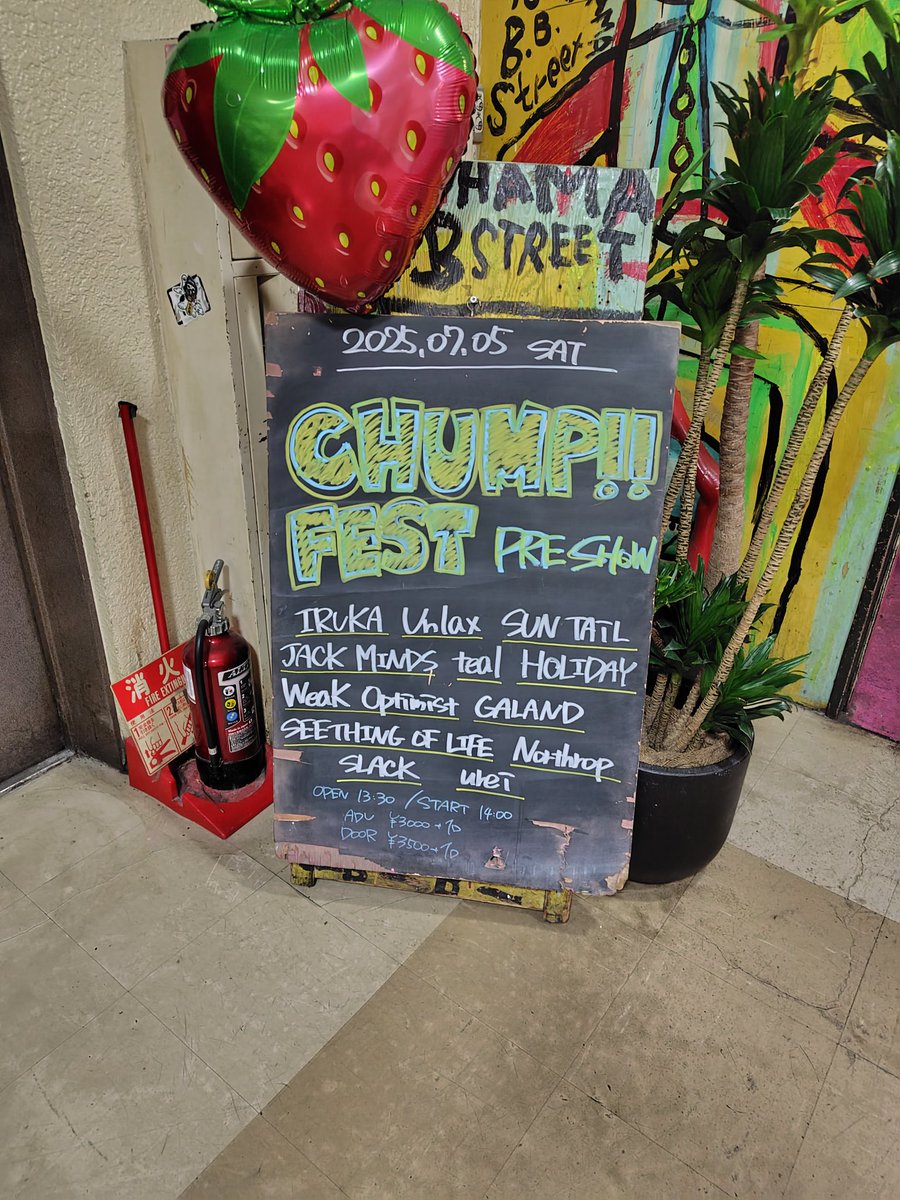 B.B.
Street
HAMA
B STREET
2025.07.05 SAT
CHUMP!!
FEST PRE SHOW
IRUKA Unlax SUN TAIL
JACK MINDS teal HOLIDAY
Weak Optimist GALAND
SEETHING OF LIFE Northrop
SLACK urei
OPEN 13:30 / START 14:00
ADV ¥3000+1D
DOOR ¥3500+1D
消火
FIRE EXTING